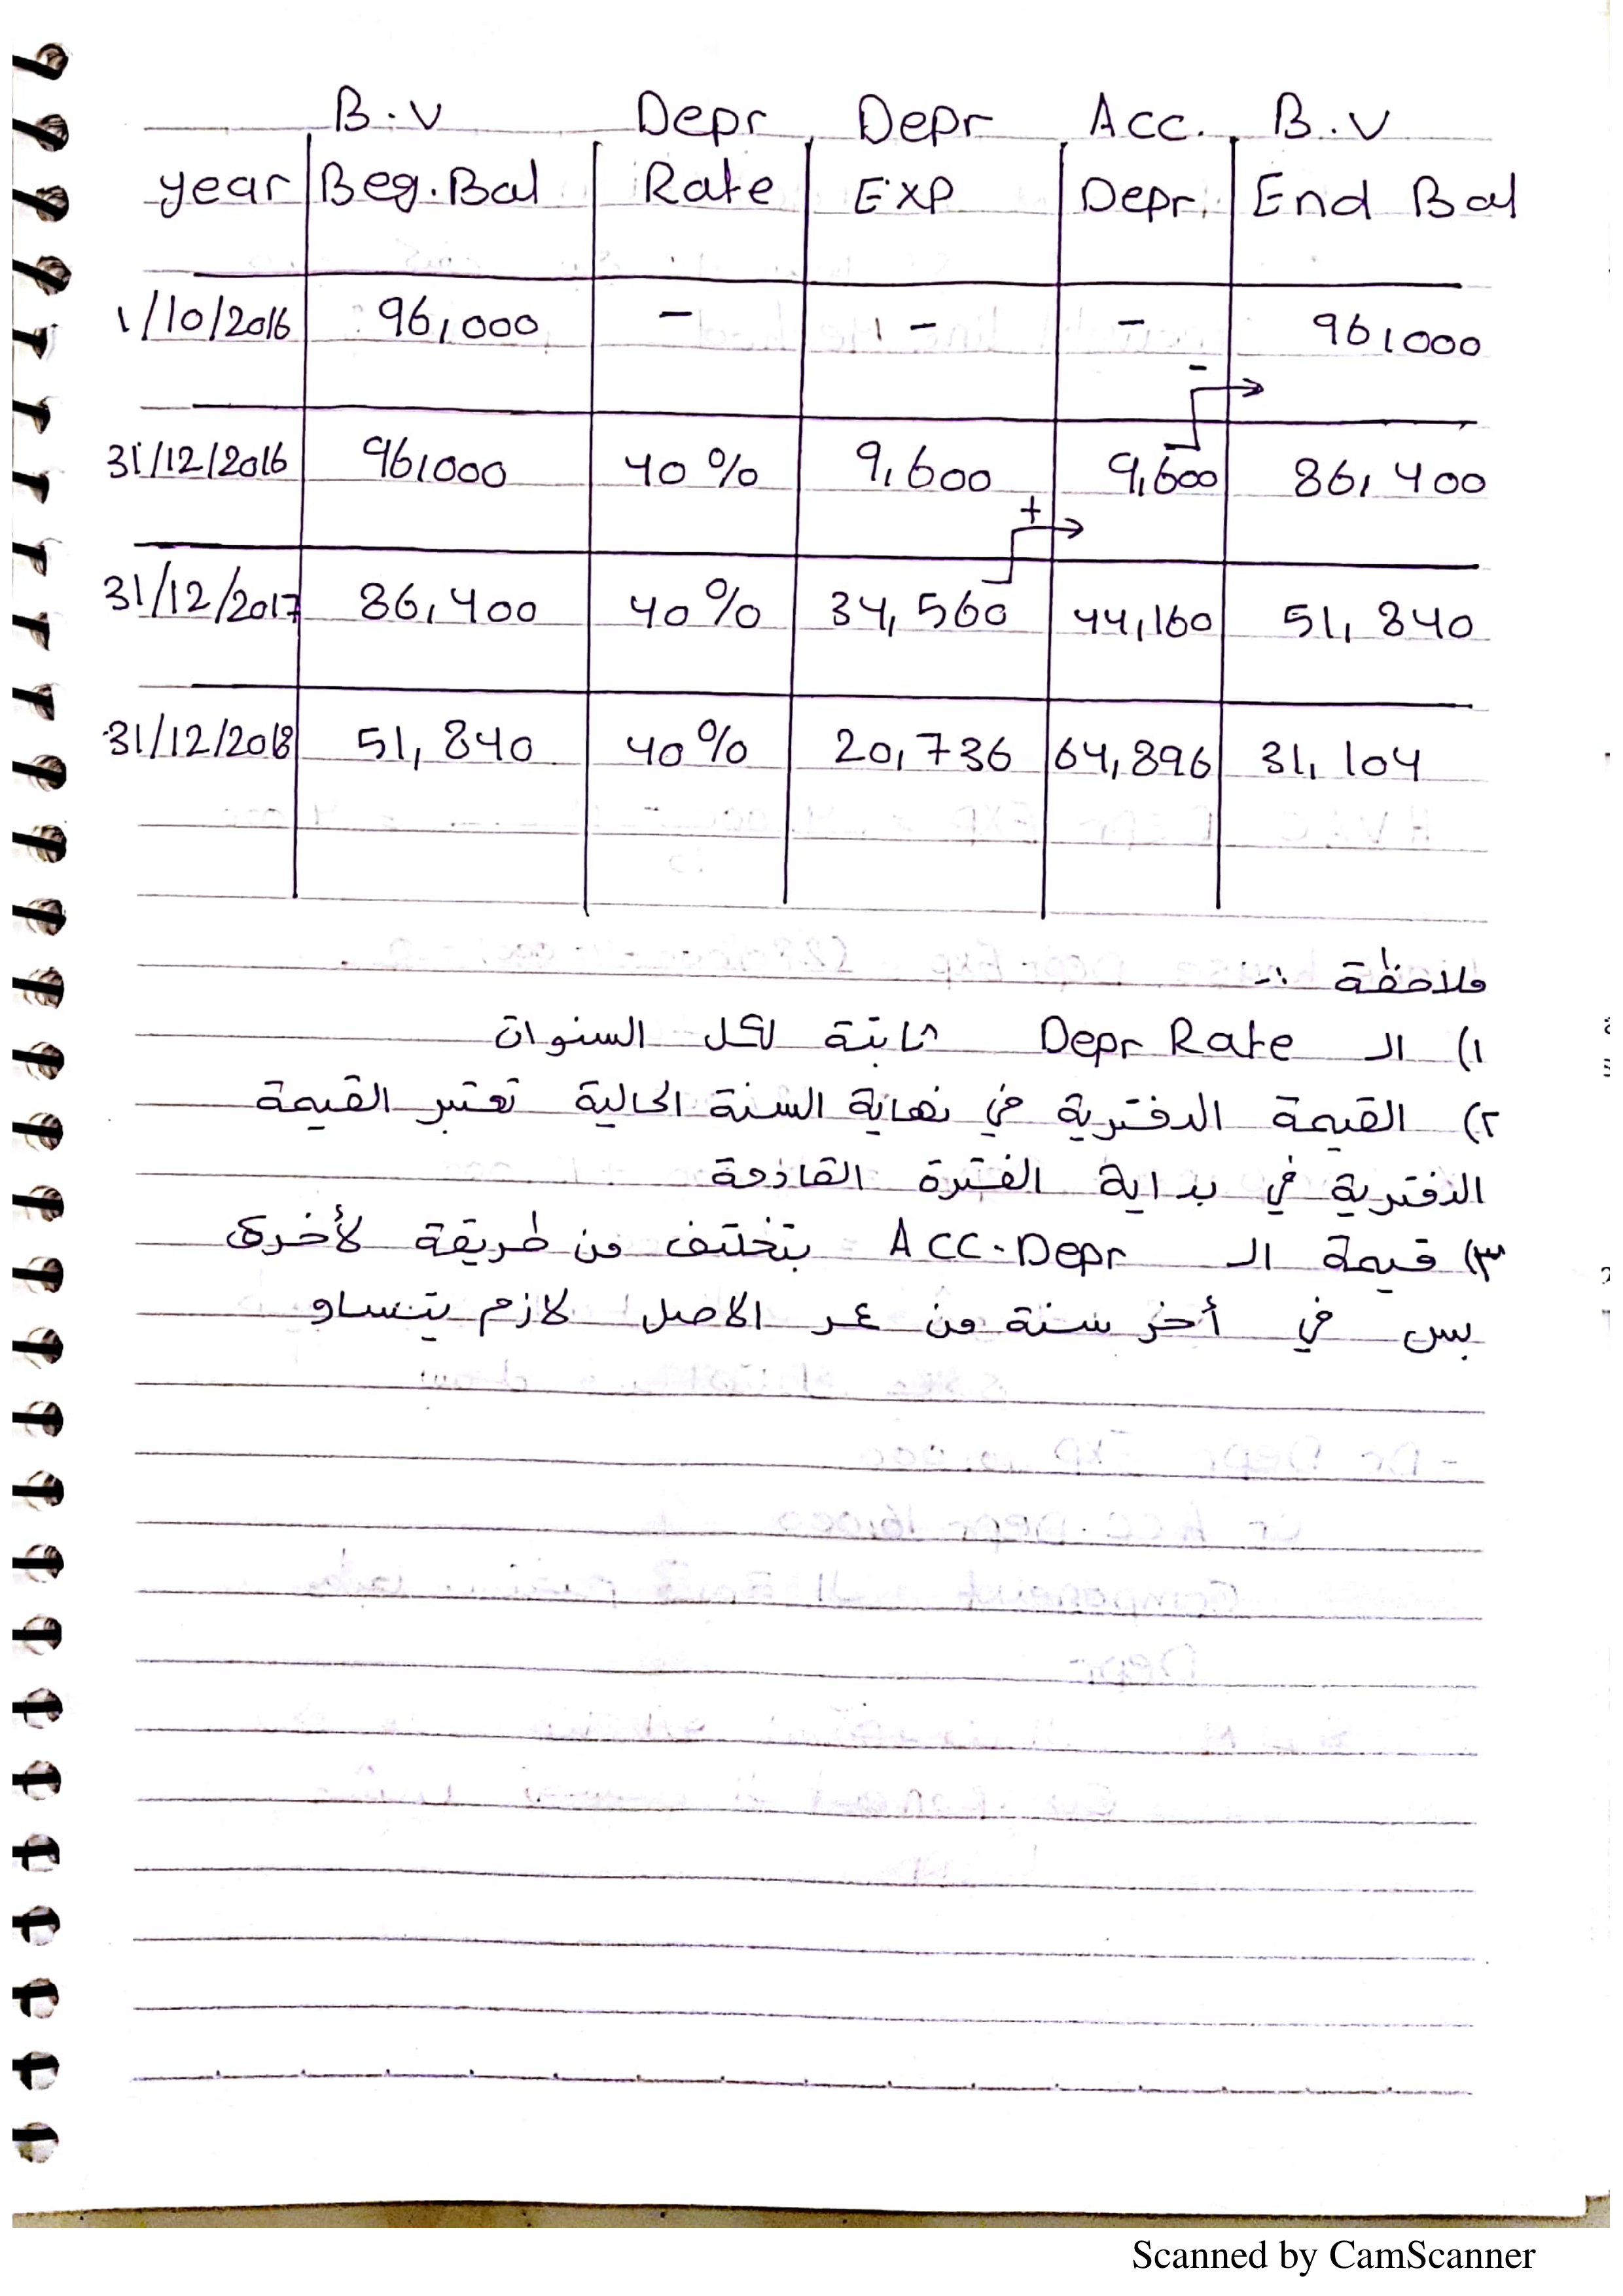 B.V Depr Depr Acc. B.V
year Beg.Bal Rate EXP Depr. End Bal
1/10/2016 96,000 - - - 96,000
-
31/12/2016 96,000 40% 9,600 9,600 86,400
+
31/12/2017 86,400 40% 34,560 44,160 51,840
31/12/2018 51,840 40% 20,736 64,896 31,104
ملاحظة :-
١) الـ Depr Rate ثابتة لكل السنوات
٢) القيمة الدفترية في نهاية السنة الحالية تعتبر القيمة
الدفترية في بداية الفترة القادمة
٣) قيمة الـ Acc.Depr بتختلف من طريقة لأخرى
بس في أخر سنة من عمر الاصل لازم يتساو
Scanned by CamScanner